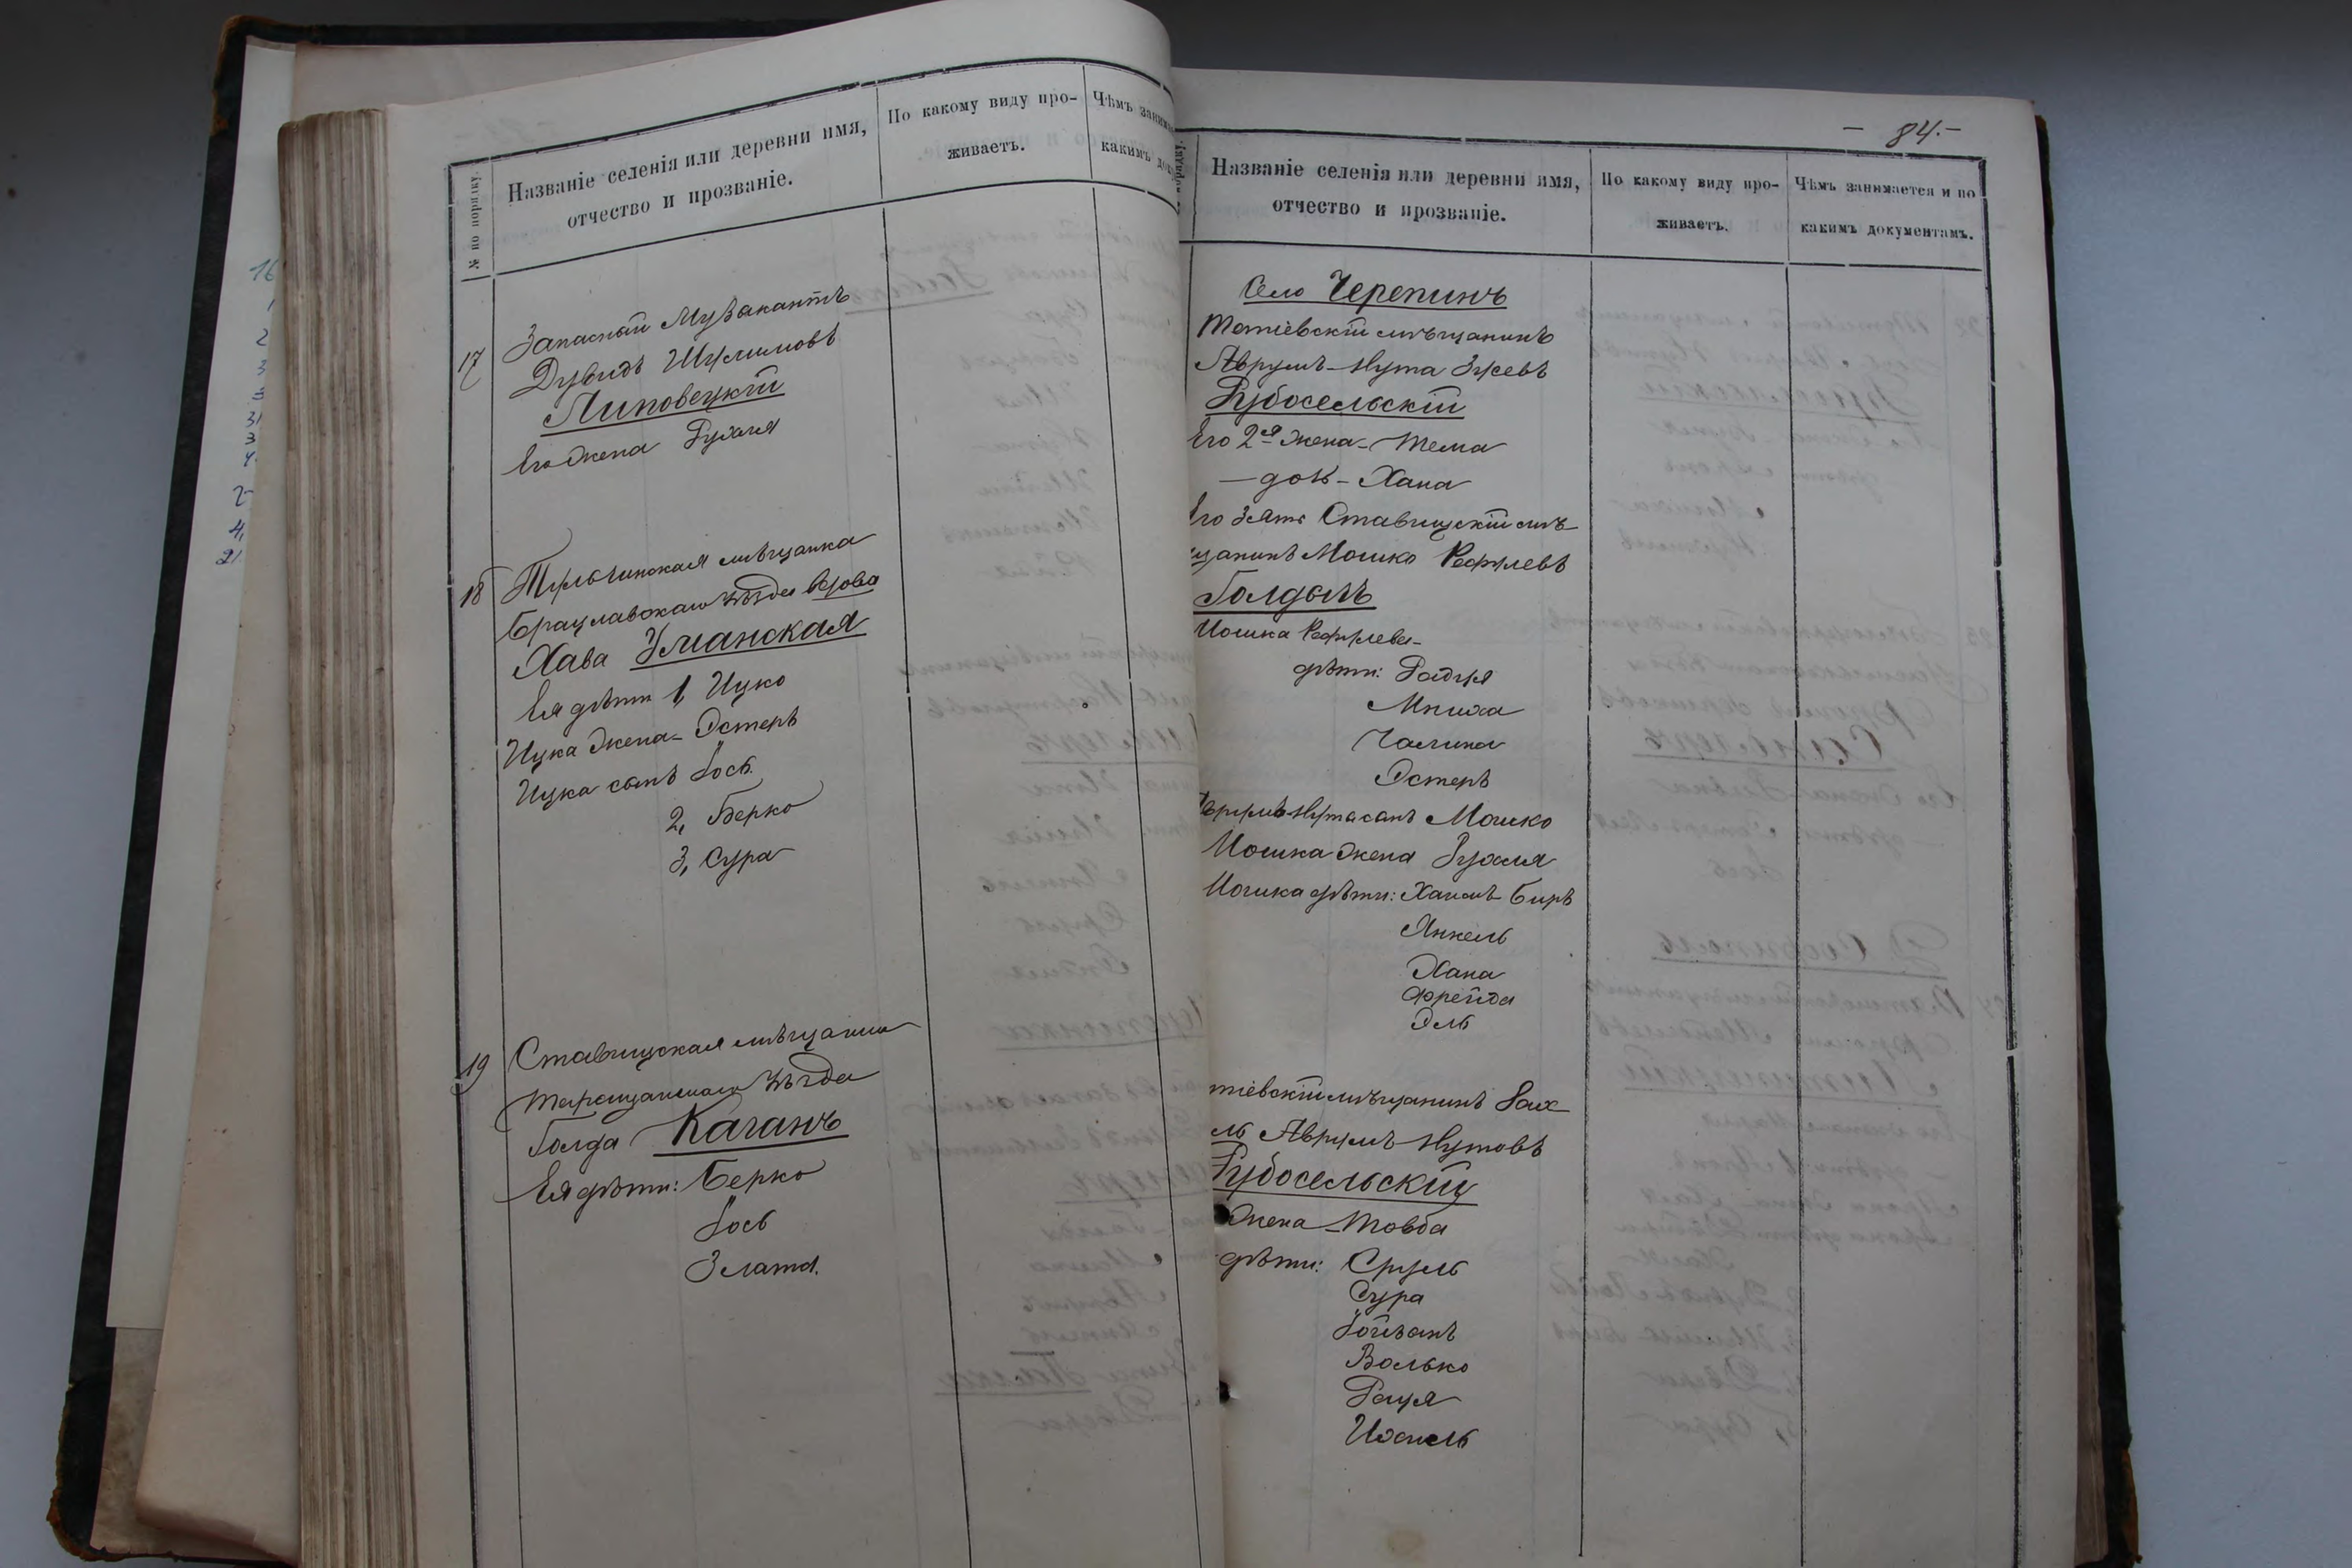 № по порядку.
Названіе селенія или деревни имя,
отчество и прозваніе.
По какому виду про-
живаетъ.
Чѣмъ
какимъ
17
Запасный Музыкантъ
Дувидъ Шулимовъ
Липовецкій
Его жена Рухля
18
Тульчинская мѣщанка
Брацлавскаго уѣзда вдова
Хава Уманская
Ея дѣти 1, Ицко
Ицка жена - Эстеръ
Ицка сынъ Іось
2, Берко
3, Сура
19
Ставищская мѣщанка
Таращанскаго уѣзда
Голда Каганъ
Ея дѣти: Берко
Іось
Злата.
- 84.-
Названіе селенія или деревни имя,
отчество и прозваніе.
По какому виду про-
живаетъ.
Чѣмъ занимается и по
какимъ документамъ.
Село Черепинъ
Тетіевскій мѣщанинъ
Аврумъ-Нута
Рубосельскій
Его 2я жена - Тема
- дочь - Хана
Его зять Ставищскій мѣ-
щанинъ Мошко Рефулевъ
Мошка Рефулева-
дѣти: Бадуя
Эстеръ
сынъ Мошко
Мошка жена Рухля
Мошка дѣти: Хаимъ-Беръ
Янкель
Хана
Фрейда
Эль
тіевскій мѣщанинъ
ль Аврумъ-Нутовъ
Рубосельскій
жена - Товба
дѣти: Сруль
Сура
Волько
Рация